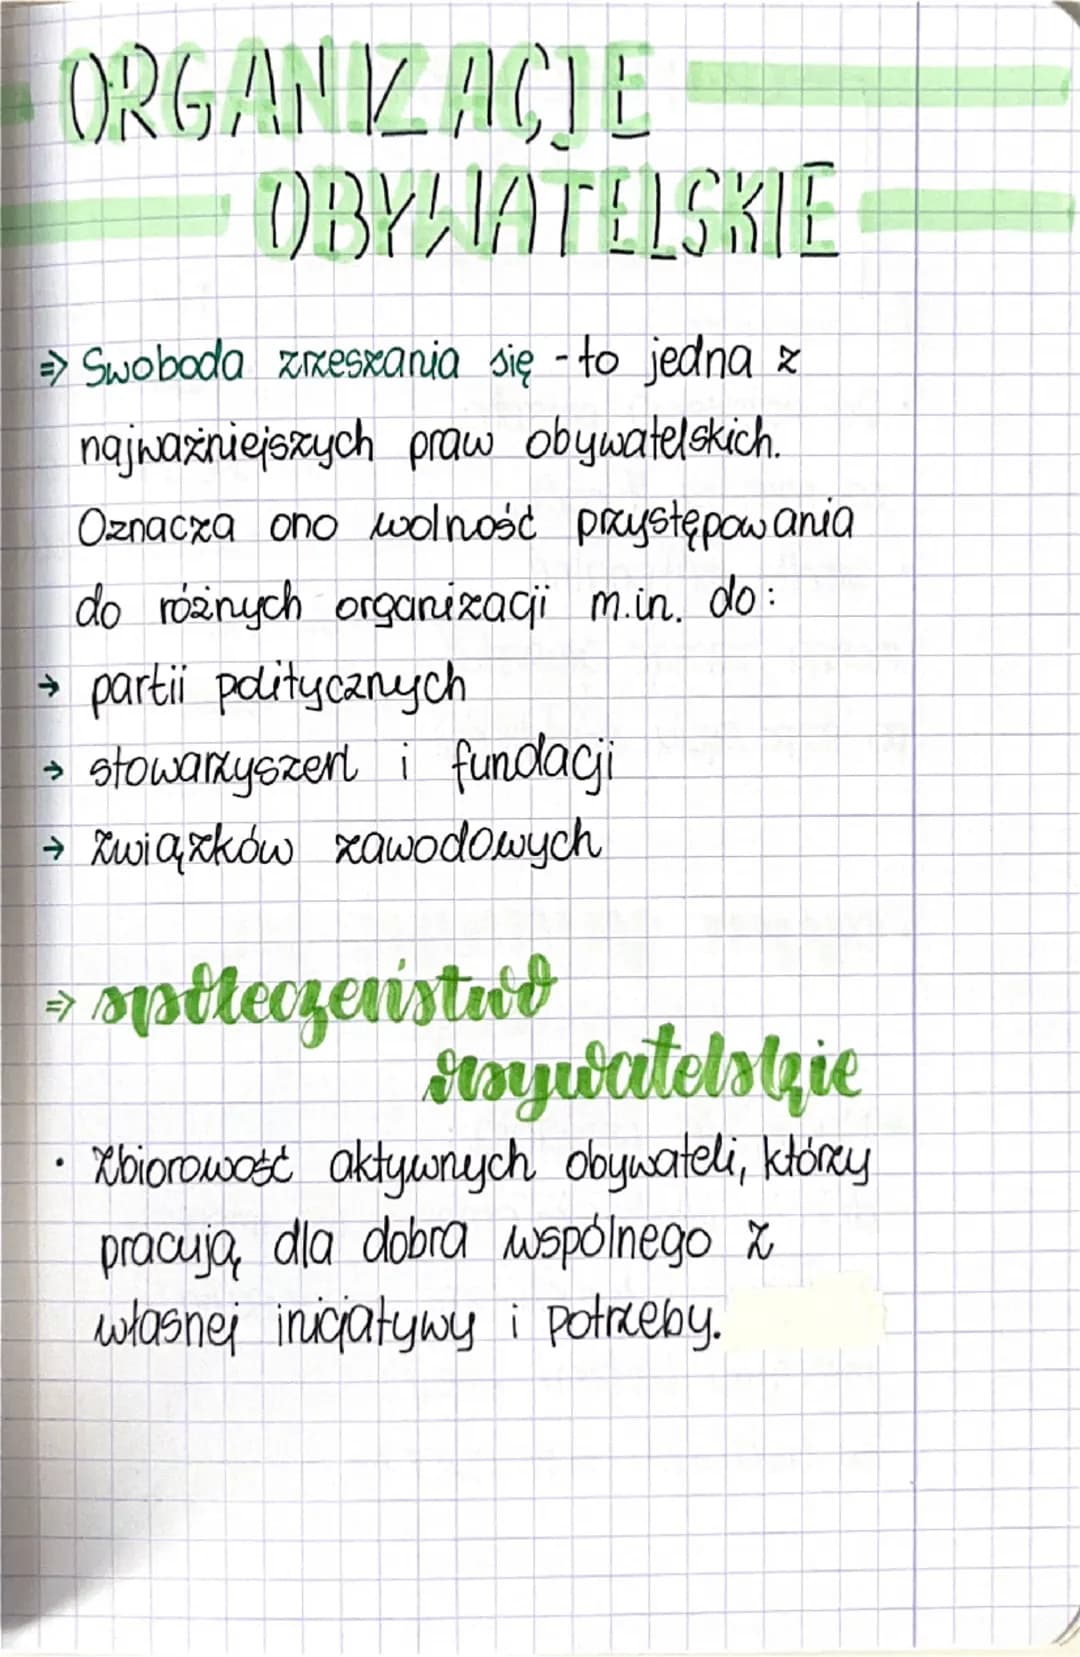 ORGANIZACJE
OBYWATELSKIE
⇒ Swoboda zrzeszania się - to jedna z
najważniejszych praw obywatelskich.
Oznacza ono wolność przystępowania
do różnych organizacji m.in. do:
→ partii politycznych
→ stowarzyszeń i fundacji
→ związków zawodowych
⇒ społeczeństwo
obywatelskie
• Zbiorowość aktywnych obywateli, którzy
pracują dla dobra wspólnego z
własnej inicjatywy i potrzeby.